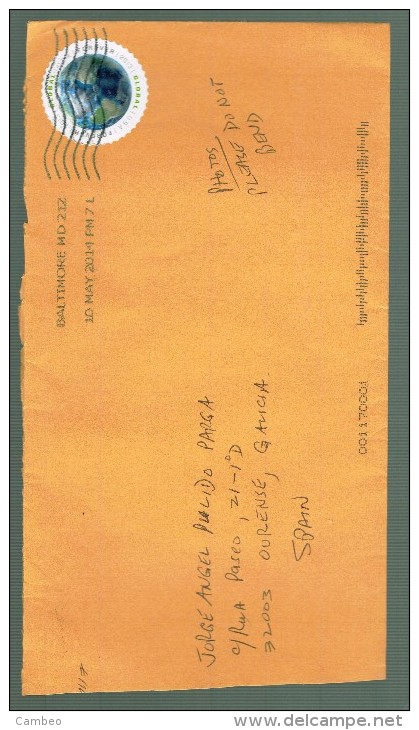 GLOBAL FOREVER USA GLOBAL
BALTIMORE MD 212
10 MAY 2014 PM 7 L
PHOTOS
PLEASE DO NOT
BEND
JORGE ANGEL PULIDO PARGA
C/RUA PASEO, 21-1ºD
32003 OURENSE, GALICIA.
SPAIN
001170001
Cambeo
www.delcampe.net